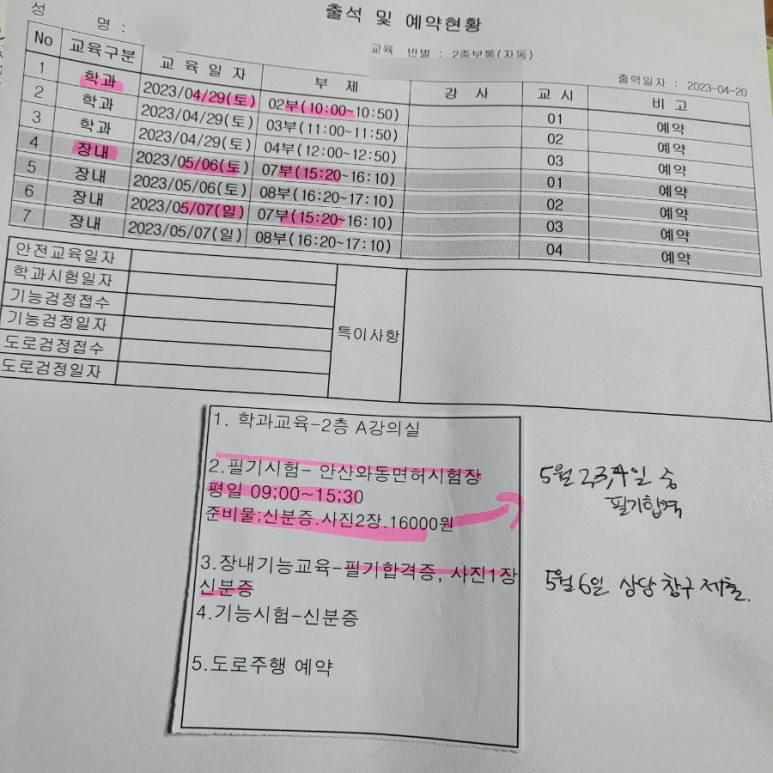 출석 및 예약현황
성 명 :
교육 반별 : 2종보통(자동)
출력일자 : 2023-04-20
No 교육구분 교육일자 부 제 강 사 교 시 비 고
1 학과 2023/04/29(토) 02부(10:00~10:50) 01 예약
2 학과 2023/04/29(토) 03부(11:00~11:50) 02 예약
3 학과 2023/04/29(토) 04부(12:00~12:50) 03 예약
4 장내 2023/05/06(토) 07부(15:20~16:10) 01 예약
5 장내 2023/05/06(토) 08부(16:20~17:10) 02 예약
6 장내 2023/05/07(일) 07부(15:20~16:10) 03 예약
7 장내 2023/05/07(일) 08부(16:20~17:10) 04 예약
안전교육일자
학과시험일자
기능검정접수
기능검정일자
도로검정접수
도로검정일자
특이사항
1. 학과교육-2층 A강의실
2.필기시험- 안산와동면허시험장
평일 09;00~15;30
준비물;신분증.사진2장.16000원
5월 2,3,4일 중
필기합격
3.장내기능교육-필기합격증, 사진1장
신분증
5월6일 상담창구 제출.
4.기능시험-신분증
5.도로주행 예약